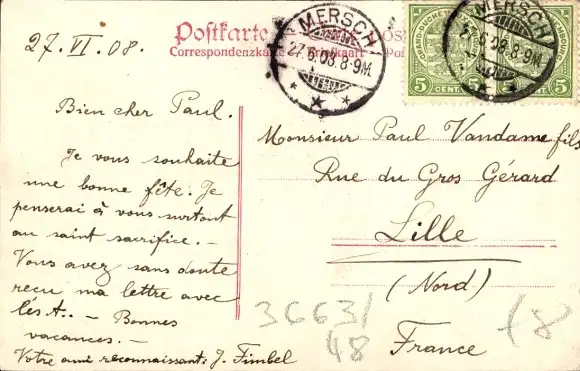 27. VI. 08.
Postkarte
Correspondenzkarte
MERSCH
27.6.08.8-9M.
MERSCH
27.6.08.8-9M.
5 CENT. 5
CENT. 5
Bien cher Paul.
Je vous souhaite
une bonne fête. Je
penserai à vous surtout
au saint sacrifice. –
Vous avez sans doute
reçu ma lettre avec
– Bonnes
vacances. –
Votre ami reconnaissant: J. Fimbel
Monsieur Paul Vandame fils
Rue du Gros Gérard
Lille
(Nord)
France
3663/
48